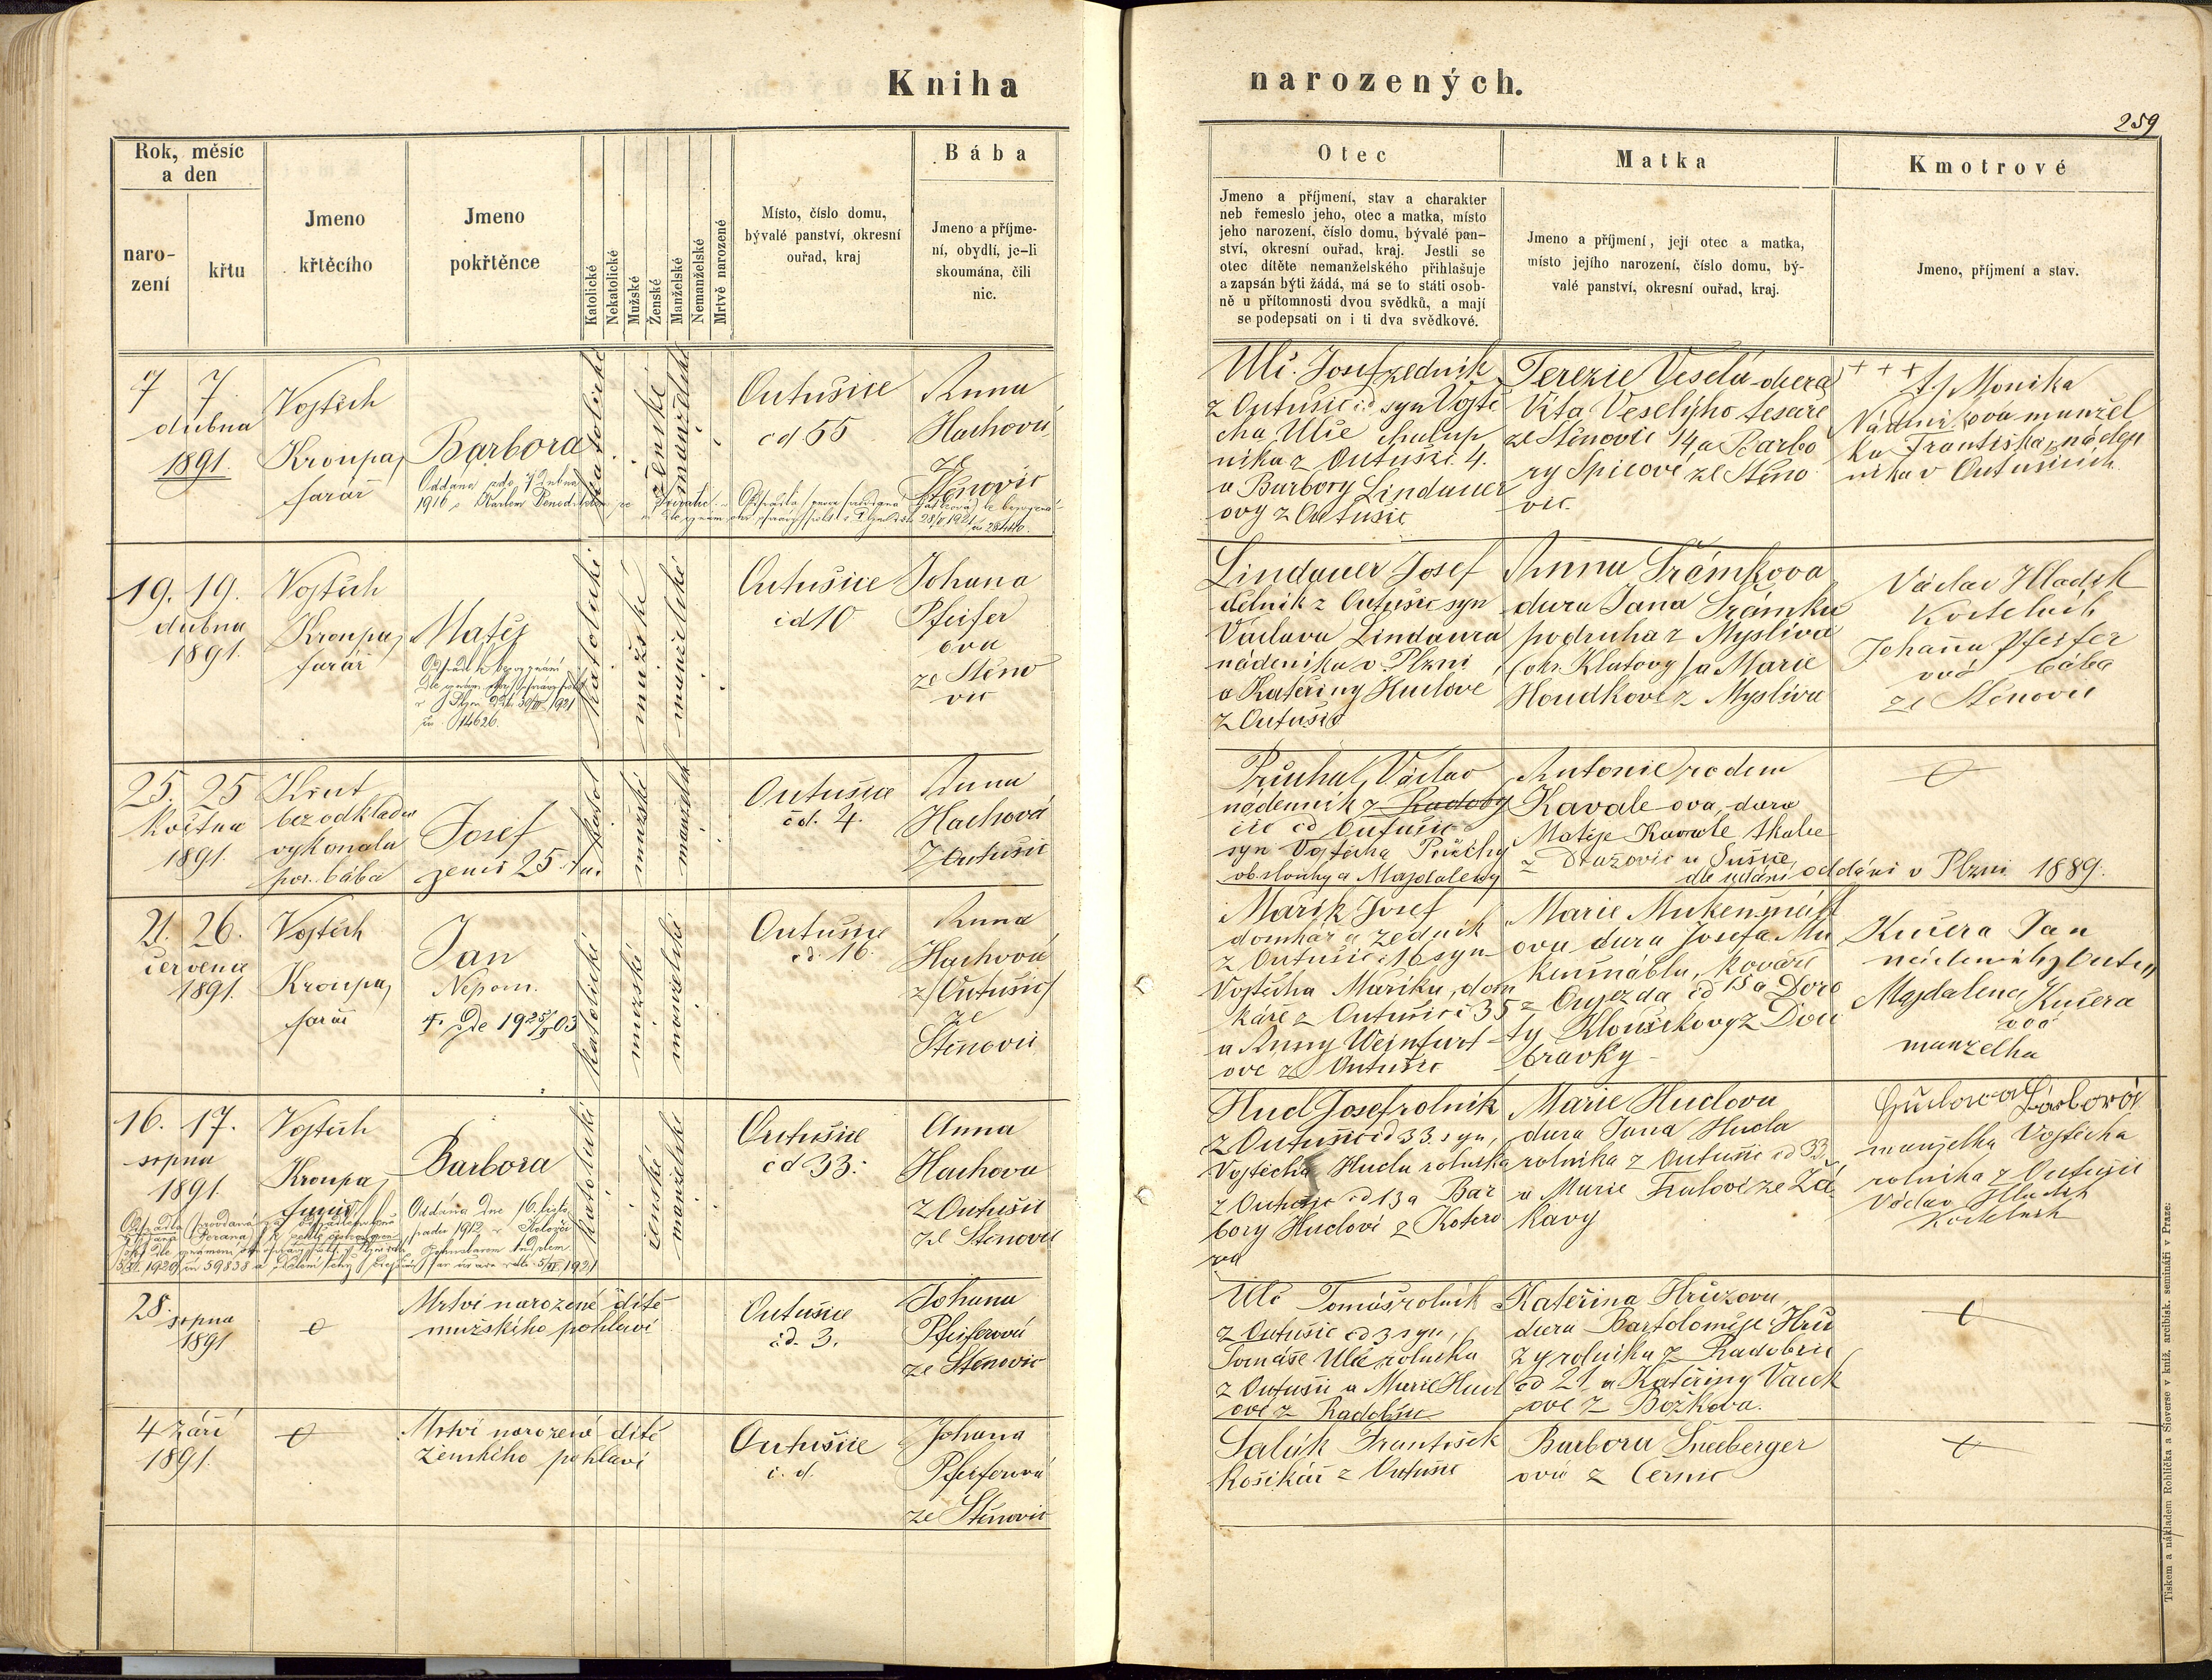 Kniha narozených.
259
Rok, měsíc
a den
naro-
zení
křtu
Jmeno
křtěcího
Jmeno
pokřtěnce
Katolické
Nekatolické
Mužské
Ženské
Manželské
Nemanželské
Mrtvě narozené
Místo, číslo domu,
bývalé panství, okresní
ouřad, kraj
Bába
Jmeno a příjme-
ní, obydlí, je-li
skoumána, čili
nic.
Otec
Jmeno a příjmení, stav a charakter
neb řemeslo jeho, otec a matka, místo
jeho narození, číslo domu, bývalé pan-
ství, okresní ouřad, kraj. Jestli se
otec dítěte nemanželského přihlašuje
a zapsán býti žádá, má se to státi osob-
ně u přítomnosti dvou svědků, a mají
se podepsati on i ti dva svědkové.
Matka
Jmeno a příjmení, její otec a matka,
místo jejího narození, číslo domu, bý-
valé panství, okresní ouřad, kraj.
Kmotrové
Jmeno, příjmení a stav.
7 7
dubna
1891.
Vojtěch
Kroupa,
farář
Barbora
Oddána
1916
katolické
ženské
manželské
Outušice
čd 55
Anna
Hachová
ze
Štěnovic
Ulč Josef zedník
z Outušic čd syn Vojtě
cha Ulče chalup
níka z Outušic 4.
a Barbory Lindauer
ovy z Outušic
Terezie Veselá dcera
Víta Veselýho tesaře
ze Štěnovic 14, a Barbo
ry Špicove ze Štěno
vic.
+ + +
Monika
ová manžel
ka Františka náden
níka v Outušicích
19. 19.
dubna
1891.
Vojtěch
Kroupa,
farář
Matěj
čís. 14626.
katolické
mužské
manželské
Outušice
čd 10
Johana
Pfeifer
ova
ze Štěno
vic
Lindauer Josef
dělník z Outušic syn
Václava Lindaura
nádeníka v Plzni
a Kateřiny Hudlové
z Outušic
Anna Šrámkova
dcera Jana Šrámka
podruha z Myslíva
(okr. Klatovy) a Marie
Houdkové z Myslíva
Václav Hladík
Kostelník
Johanna Pfeifer
ová bába
ze Štěnovic
25. 25
května
1891.
Křest
bez odkladu
vykonala
por. bába
Josef
zemř 25. t.m.
katol
mužské
manželské
Outušice
čd. 4.
Anna
Hachová
z Outušic
Průcha, Václav
nádenník z Radoby
čic čd Outušic
syn Vojtěcha Průchy
obsluhy a Majdaleny
Antonie rodem
Kavale ova, dcera
Matěje Kavale
z Dražovic u Sušice
dle udání oddáni v Plzni 1889.
21. 26.
července
1891.
Vojtěch
Kroupa,
farář
Jan
Nepom.
katolické
mužské
manželské
Outušice
čd. 16.
Anna
Hachová
z (Outušic)
ze
Štěnovic
Mařík Josef
domkář a zedník
z Outušic č 16 syn
Vojtěcha Maříka, dom
káře z Outušic č 35
a Anny Weinfurt
ove z Outušic
Marie Mukenšnábl
ova dcera Josefa Mu
kenšnábla, kováře
z Oujezda čd 15 a Doro
ty Kloučkovy z Dou
bravky
Kučera Jan
nádenník z Outu„
Majdalena Kučera
ová
manželka
16. 17.
srpna
1891.
Vojtěch
Kroupa,
farář
Barbora
Oddána dne 16. listo
padu 1912
katolické
ženské
manželské
Outušice
čd 33.
Anna
Hachova
z Outušic
ze Štěnovic
Hudl Josef rolník
z Outušic čd 33. syn,
Vojtěcha Hudla rolníka
z Outušic čd 13 a Bar
bory Hudlové z Kotero
va
Marie Hudlova
dcera Jana Hudla
rolníka z Outušic čd 33
a Marie ze Žá
kavy
Hudlova Barbora
manželka Vojtěcha
rolníka z Outušic
Václav Hladík
kostelník
28.
srpna
1891
Mrtvě narozené dítě
mužského pohlaví
Outušice
čd. 3.
Johana
Pfeiferová
ze Štěnovic
Ulč Tomáš rolník
z Outušic čd 3 syn,
Tomáše Ulče rolníka
z Outušic a Marie Hudl
ové z Radobčic
Kateřina Hrůzova,
dcera Bartoloměje Hrů
zy rolníka z Radobčic
čd 21 a Kateřiny Vacík
ové z Božkova.
4 září
1891.
Mrtvě narozené dítě
ženského pohlaví
Outušice
č. d.
Johana
Pfeiferová
ze Štěnovic
Salák František
košikář z Outušic
Barbora Šneeberger
ová z Černic
Tiskem a nákladem Rohlíčka a Sieverse v kníž. arcibisk. semináři v Praze.